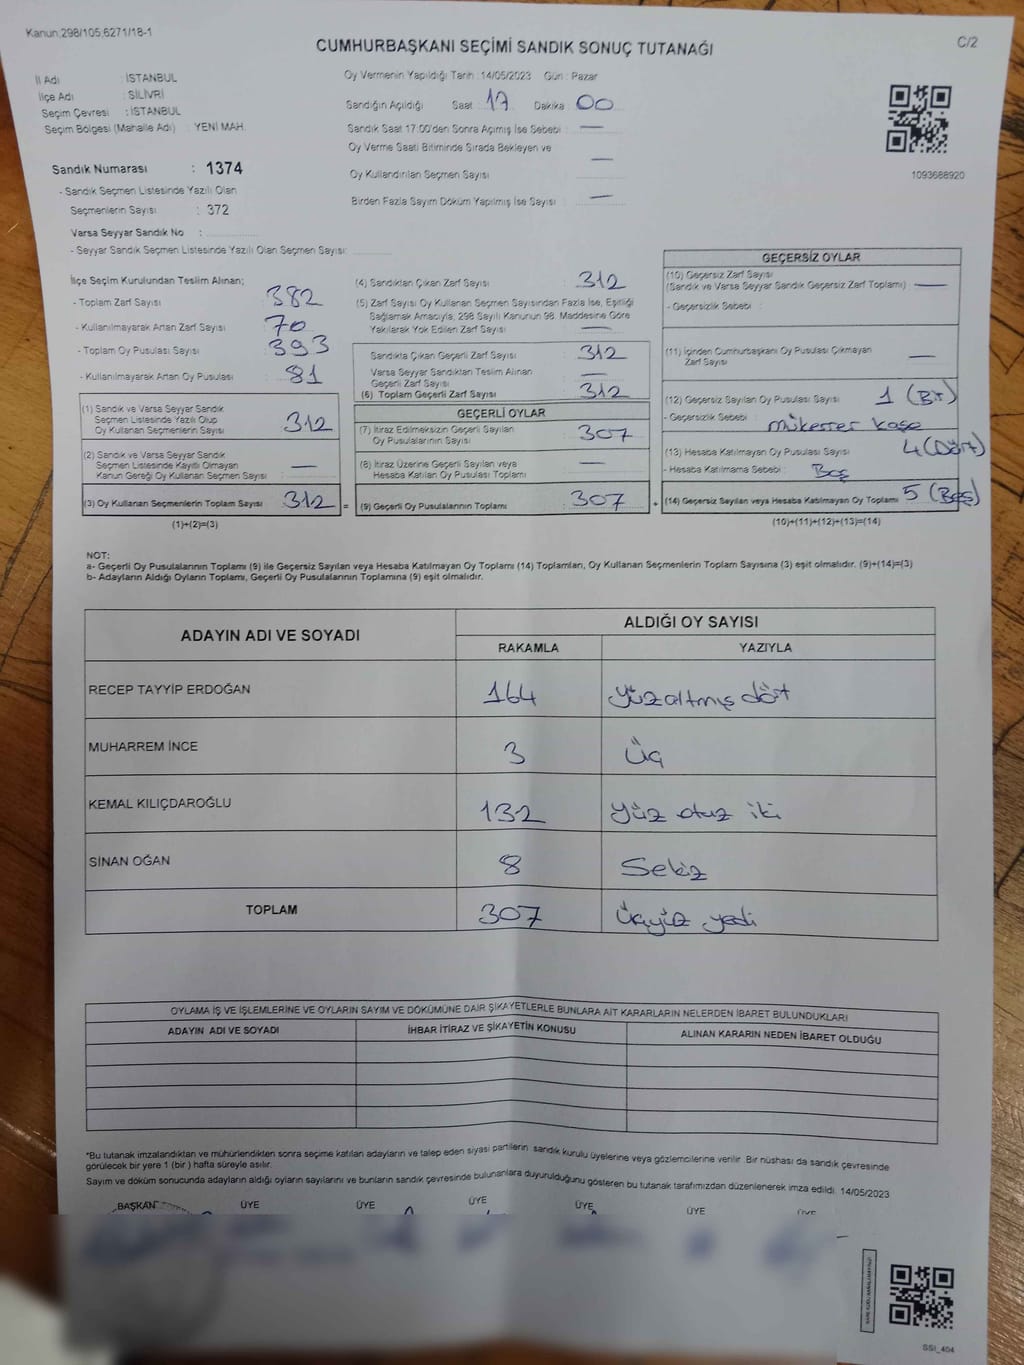 Kanun:298/105,6271/18-1
C/2
CUMHURBAŞKANI SEÇİMİ SANDIK SONUÇ TUTANAĞI
İl Adı : İSTANBUL
İlçe Adı : SİLİVRİ
Seçim Çevresi : İSTANBUL
Seçim Bölgesi (Mahalle Adı) : YENİ MAH.
Sandık Numarası : 1374
- Sandık Seçmen Listesinde Yazılı Olan
Seçmenlerin Sayısı : 372
Varsa Seyyar Sandık No :
- Seyyar Sandık Seçmen Listesinde Yazılı Olan Seçmen Sayısı:
Oy Vermenin Yapıldığı Tarih : 14/05/2023 Gün : Pazar
Sandığın Açıldığı Saat : 17 Dakika : 00
Sandık Saat 17:00'den Sonra Açılmış İse Sebebi : —
Oy Verme Saati Bitiminde Sırada Bekleyen ve
Oy Kullandırılan Seçmen Sayısı : —
Birden Fazla Sayım Döküm Yapılmış İse Sayısı : —
1093688920
İlçe Seçim Kurulundan Teslim Alınan;
- Toplam Zarf Sayısı : 382
- Kullanılmayarak Artan Zarf Sayısı : 70
- Toplam Oy Pusulası Sayısı : 393
- Kullanılmayarak Artan Oy Pusulası : 81
(1) Sandık ve Varsa Seyyar Sandık
Seçmen Listesinde Yazılı Olup
Oy Kullanan Seçmenlerin Sayısı : 312
(2) Sandık ve Varsa Seyyar Sandık
Seçmen Listesinde Kayıtlı Olmayan
Kanun Gereği Oy Kullanan Seçmen Sayısı : —
(3) Oy Kullanan Seçmenlerin Toplam Sayısı : 312 =
(1)+(2)=(3)
(4) Sandıktan Çıkan Zarf Sayısı : 312
(5) Zarf Sayısı Oy Kullanan Seçmen Sayısından Fazla İse, Eşitliği
Sağlamak Amacıyla, 298 Sayılı Kanunun 98. Maddesine Göre
Yakılarak Yok Edilen Zarf Sayısı : —
Sandıkta Çıkan Geçerli Zarf Sayısı : 312
Varsa Seyyar Sandıktan Teslim Alınan
Geçerli Zarf Sayısı : —
(6) Toplam Geçerli Zarf Sayısı : 312
GEÇERLİ OYLAR
(7) İtiraz Edilmeksizin Geçerli Sayılan
Oy Pusulalarının Sayısı : 307
(8) İtiraz Üzerine Geçerli Sayılan veya
Hesaba Katılan Oy Pusulalarının Toplamı : —
(9) Geçerli Oy Pusulalarının Toplamı : 307 +
GEÇERSİZ OYLAR
(10) Geçersiz Zarf Sayısı
(Sandık ve Varsa Seyyar Sandık Geçersiz Zarf Toplamı) : —
- Geçersizlik Sebebi :
(11) İçinden Cumhurbaşkanı Oy Pusulası Çıkmayan
Zarf Sayısı : —
(12) Geçersiz Sayılan Oy Pusulası Sayısı : 1 (Bir)
- Geçersizlik Sebebi : mükerrer kaşe
(13) Hesaba Katılmayan Oy Pusulası Sayısı : 4 (Dört)
- Hesaba Katılmama Sebebi : Boş
(14) Geçersiz Sayılan veya Hesaba Katılmayan Oy Toplamı : 5 (Beş)
(10)+(11)+(12)+(13)=(14)
NOT:
a- Geçerli Oy Pusulalarının Toplamı (9) ile Geçersiz Sayılan veya Hesaba Katılmayan Oy Toplamı (14) Toplamları, Oy Kullanan Seçmenlerin Toplam Sayısına (3) eşit olmalıdır. (9)+(14)=(3)
b- Adayların Aldığı Oyların Toplamı, Geçerli Oy Pusulalarının Toplamına (9) eşit olmalıdır.
ADAYIN ADI VE SOYADI
ALDIĞI OY SAYISI
RAKAMLA YAZIYLA
RECEP TAYYİP ERDOĞAN 164 yüzaltmış dört
MUHARREM İNCE 3 üç
KEMAL KILIÇDAROĞLU 132 yüz otuz iki
SİNAN OĞAN 8 Sekiz
TOPLAM 307 üçyüz yedi
OYLAMA İŞ VE İŞLEMLERİNE VE OYLARIN SAYIM VE DÖKÜMÜNE DAİR ŞİKAYETLERLE BUNLARA AİT KARARLARIN NELERDEN İBARET BULUNDUKLARI
ADAYIN ADI VE SOYADI İHBAR İTİRAZ VE ŞİKAYETİN KONUSU ALINAN KARARIN NEDEN İBARET OLDUĞU
*Bu tutanak imzalandıktan ve mühürlendikten sonra seçime katılan adayların ve talep eden siyasi partilerin sandık kurulu üyelerine veya gözlemcilerine verilir. Bir nüshası da sandık çevresinde
görülecek bir yere 1 (bir) hafta süreyle asılır.
Sayım ve döküm sonucunda adayların aldığı oyların sayılarını ve bunların sandık çevresinde bulunanlara duyurulduğunu gösteren bu tutanak tarafımızdan düzenlenerek imza edildi. 14/05/2023
BAŞKAN ÜYE ÜYE ÜYE ÜYE ÜYE ÜYE
SSI_404